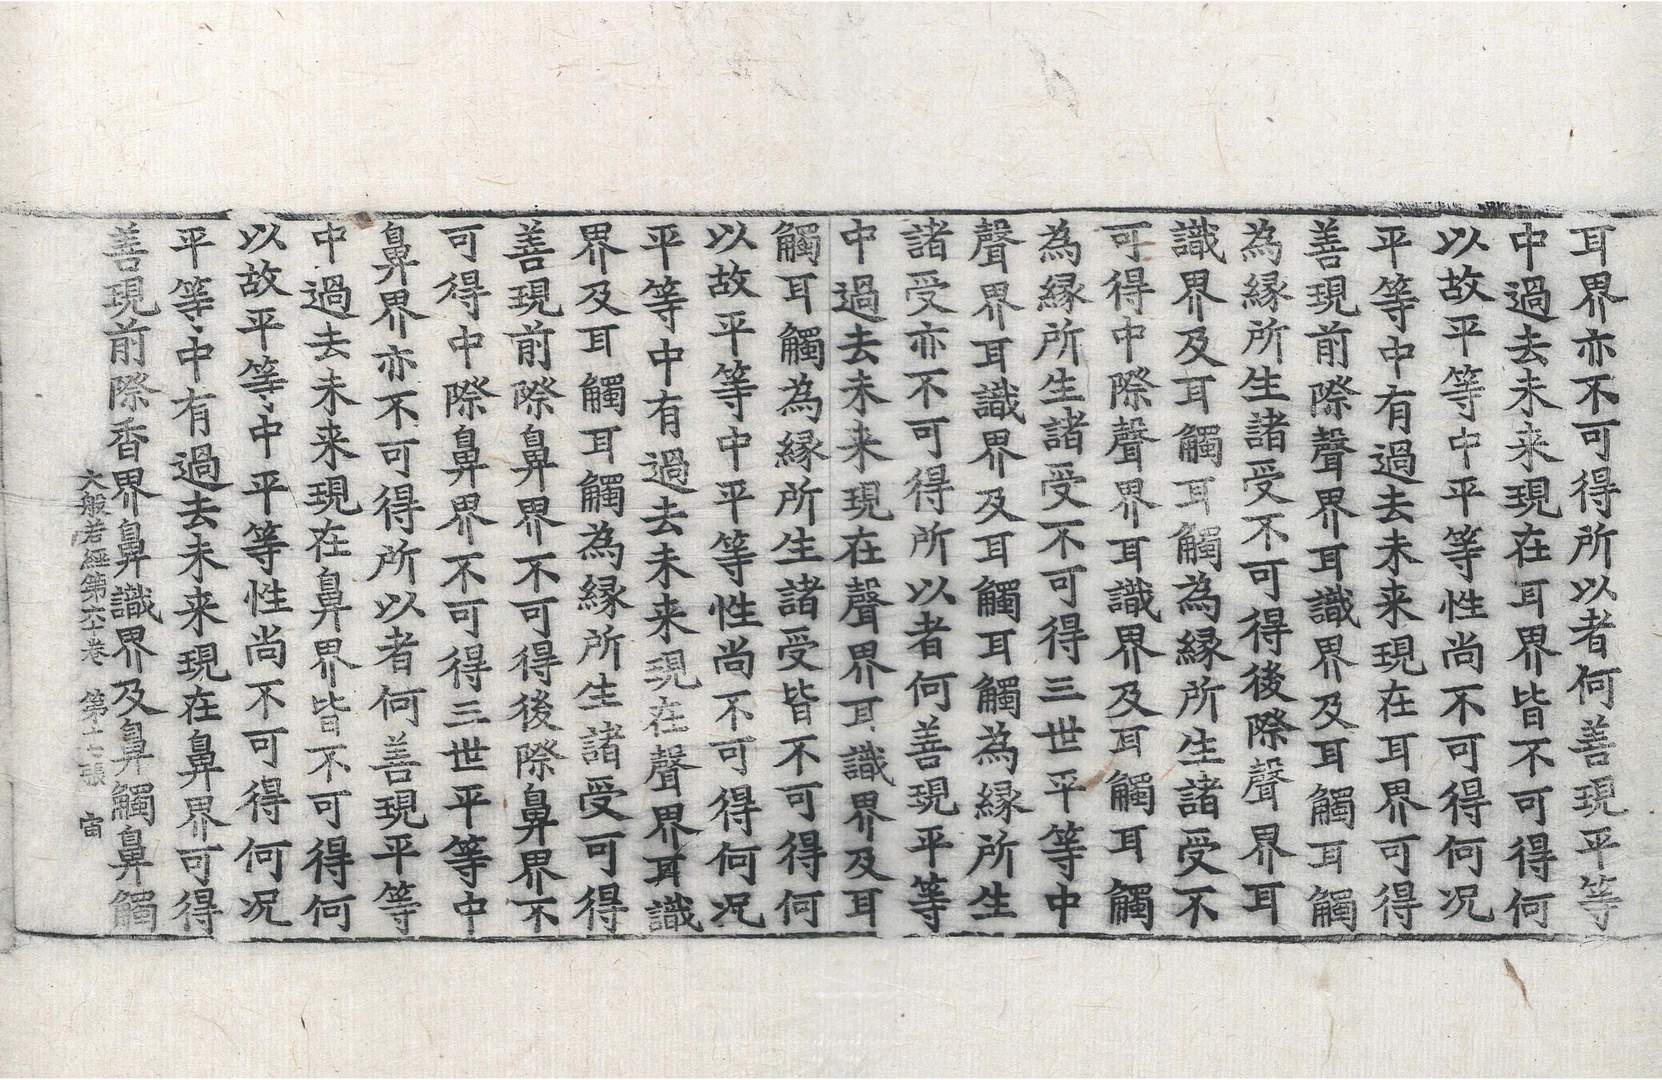 耳界亦不可得所以者何善現平等
中過去未来現在耳界皆不可得何
以故平等中平等性尚不可得何况
平等中有過去未来現在耳界可得
善現前際聲界耳識界及耳觸耳觸
為縁所生諸受不可得後際聲界耳
識界及耳觸耳觸為縁所生諸受不
可得中際聲界耳識界及耳觸耳觸
為縁所生諸受不可得三世平等中
聲界耳識界及耳觸耳觸為縁所生
諸受亦不可得所以者何善現平等
中過去未来現在聲界耳識界及耳
觸耳觸為縁所生諸受皆不可得何
以故平等中平等性尚不可得何况
平等中有過去未来現在聲界耳識
界及耳觸耳觸為縁所生諸受可得
善現前際鼻界不可得後際鼻界不
可得中際鼻界不可得三世平等中
鼻界亦不可得所以者何善現平等
中過去未来現在鼻界皆不可得何
以故平等中平等性尚不可得何况
平等中有過去未来現在鼻界可得
善現前際香界鼻識界及鼻觸鼻觸
大般若經第六十卷 第十七張 宙